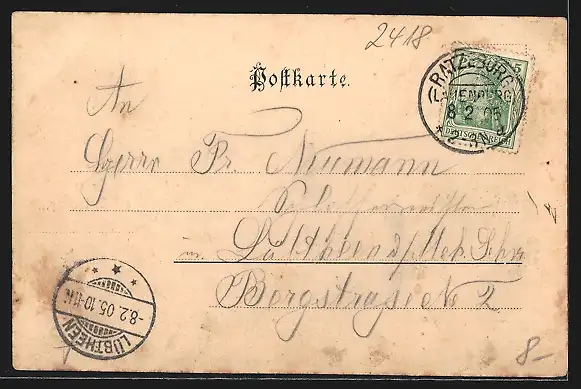 2418
Postkarte.
5
RATZEBURG
(LAUENBURG)
8 2 05
DEUTSCHES REICH
An
Herrn Fr. Neumann
in Lübtheen i/Mek. Schw
Bergstrasse No 2
LÜBTHEEN
-8.2.05.10-11.N.
8-